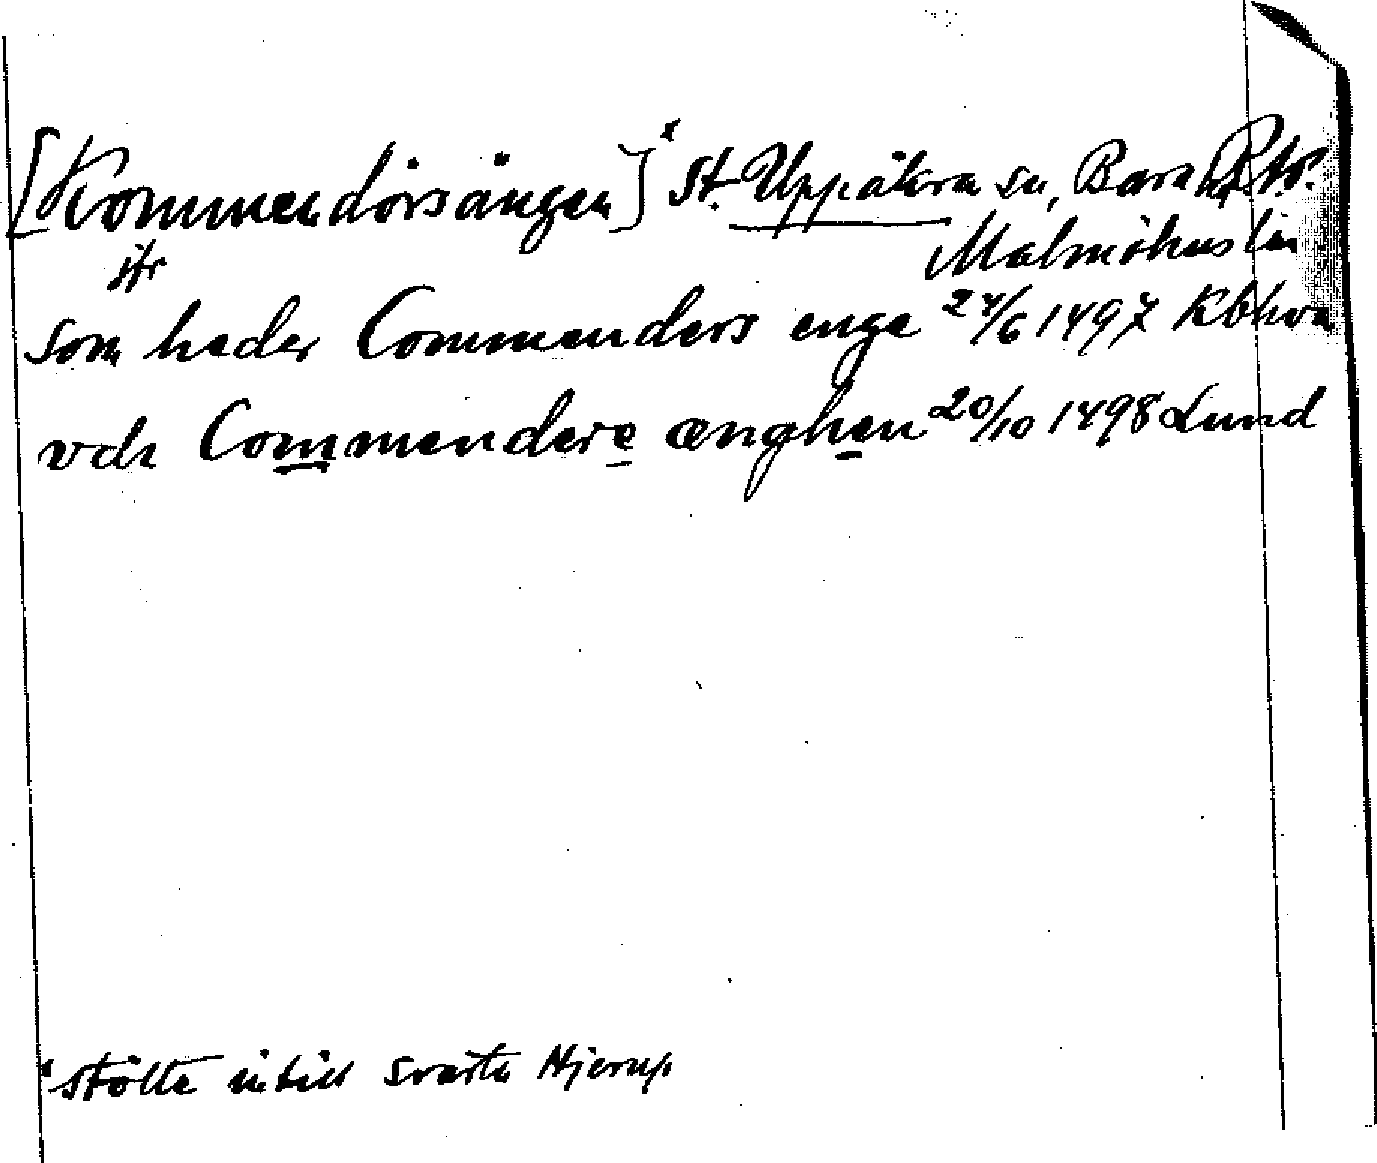 [Kommendörsängen]x St. Uppåkra sn, Bara hd
itr Malmöhus län
som heder Commenders enge 24/6 1497 Kbhvn
vdh Commendere ænghen 20/10 1498 Lund
x stötte intill Svarta Hjerup